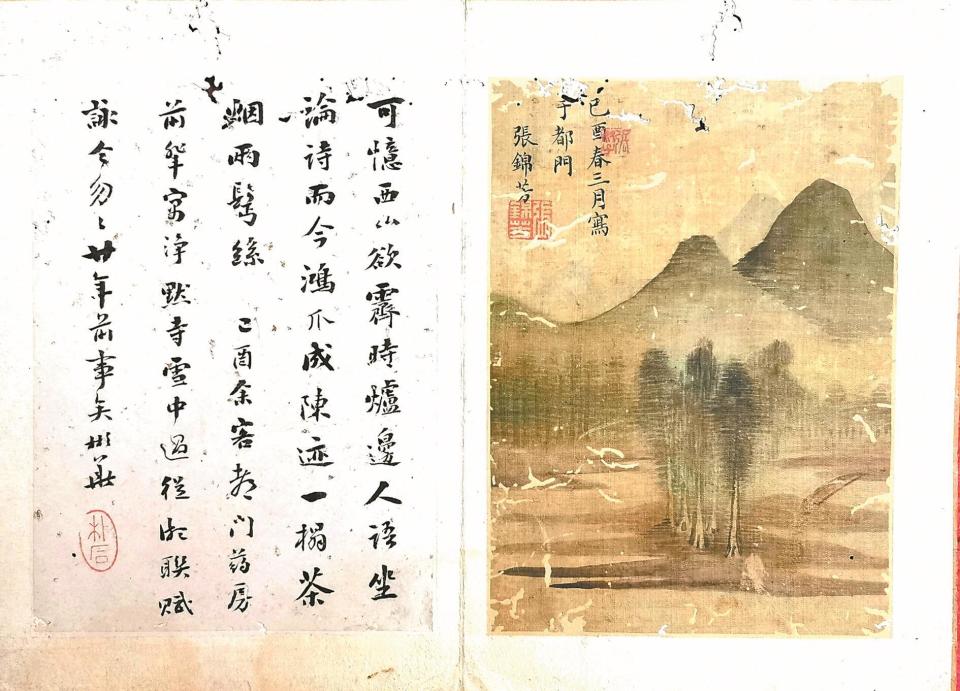 己酉春三月寫
于都門
張錦芳
可憶西山欲霽時爐邊人语坐
論詩而今鴻爪成陳迹一榻茶
烟兩鬓絲 己酉余客都门葯房
前輩寓淨默寺雪中過從聯賦
詠今勿〻廿年前事矣彬華
朴石